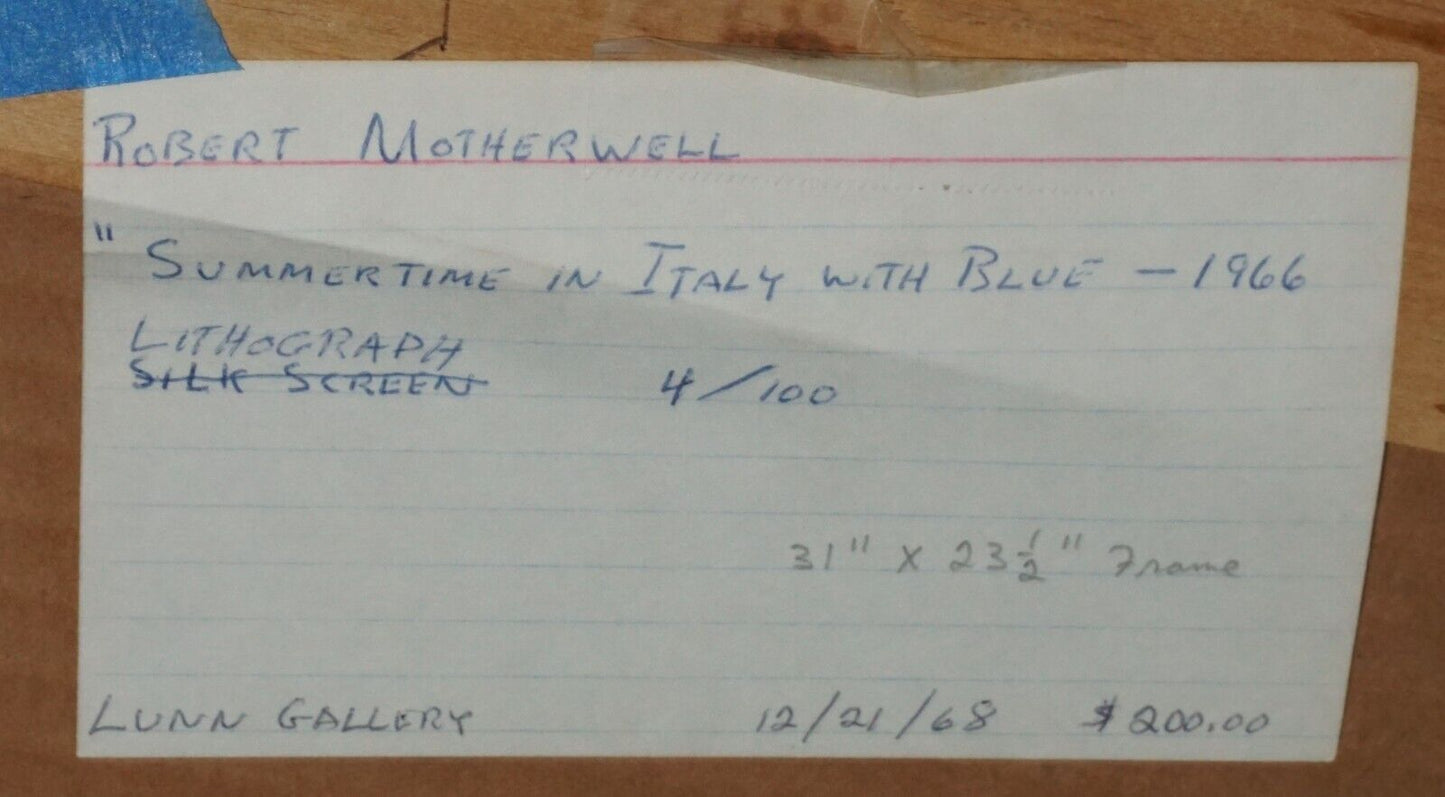 ROBERT MOTHERWELL
" SUMMERTIME IN ITALY WITH BLUE — 1966
LITHOGRAPH
SILK SCREEN 4/100
31" X 23 1/2" Frame
LUNN GALLERY 12/21/68 $200.00